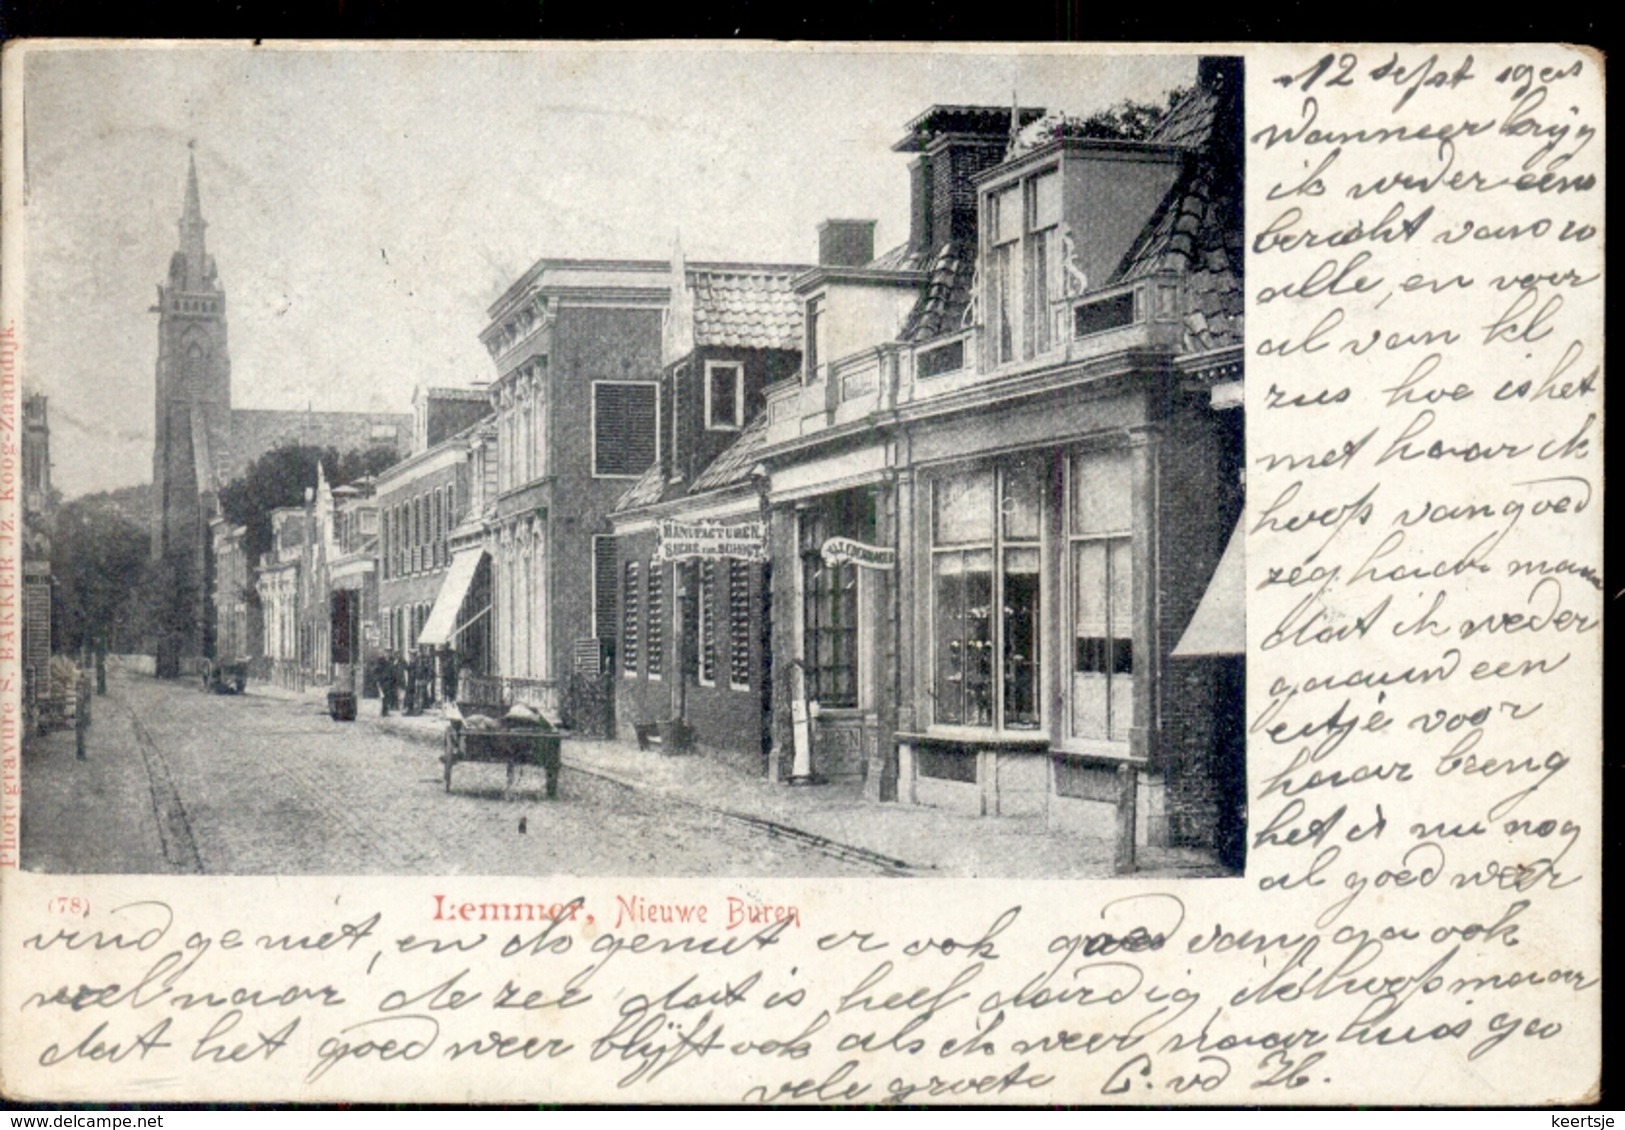 12 Sept
Wanneer krijg
ik weder eens
bericht van u
alle, en voor
al van kl
zus hoe is het
met haar ik
hoop van goed
zeg haar maar
dat ik weder
gauw een
eitje voor
haar breng
het is nu nog
al goed weer
Photogravure S. BAKKER Jz. Koog-Zaandijk.
MANUFACTUREN,
(78)
Lemmer, Nieuwe Buren
vind ge niet, en do geniet er ook goed van, ga ook
wel naar de zee dat is heel aardig ik hoop maar
dat het goed weer blijft ook als ik weer naar huis ga
vele groete C. vd
keertsje